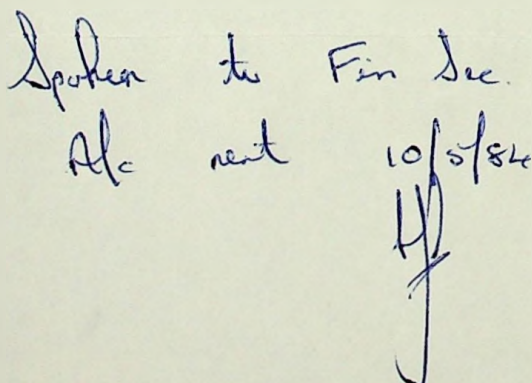 Spoken to Fin Sec.
A/c sent 10/5/84